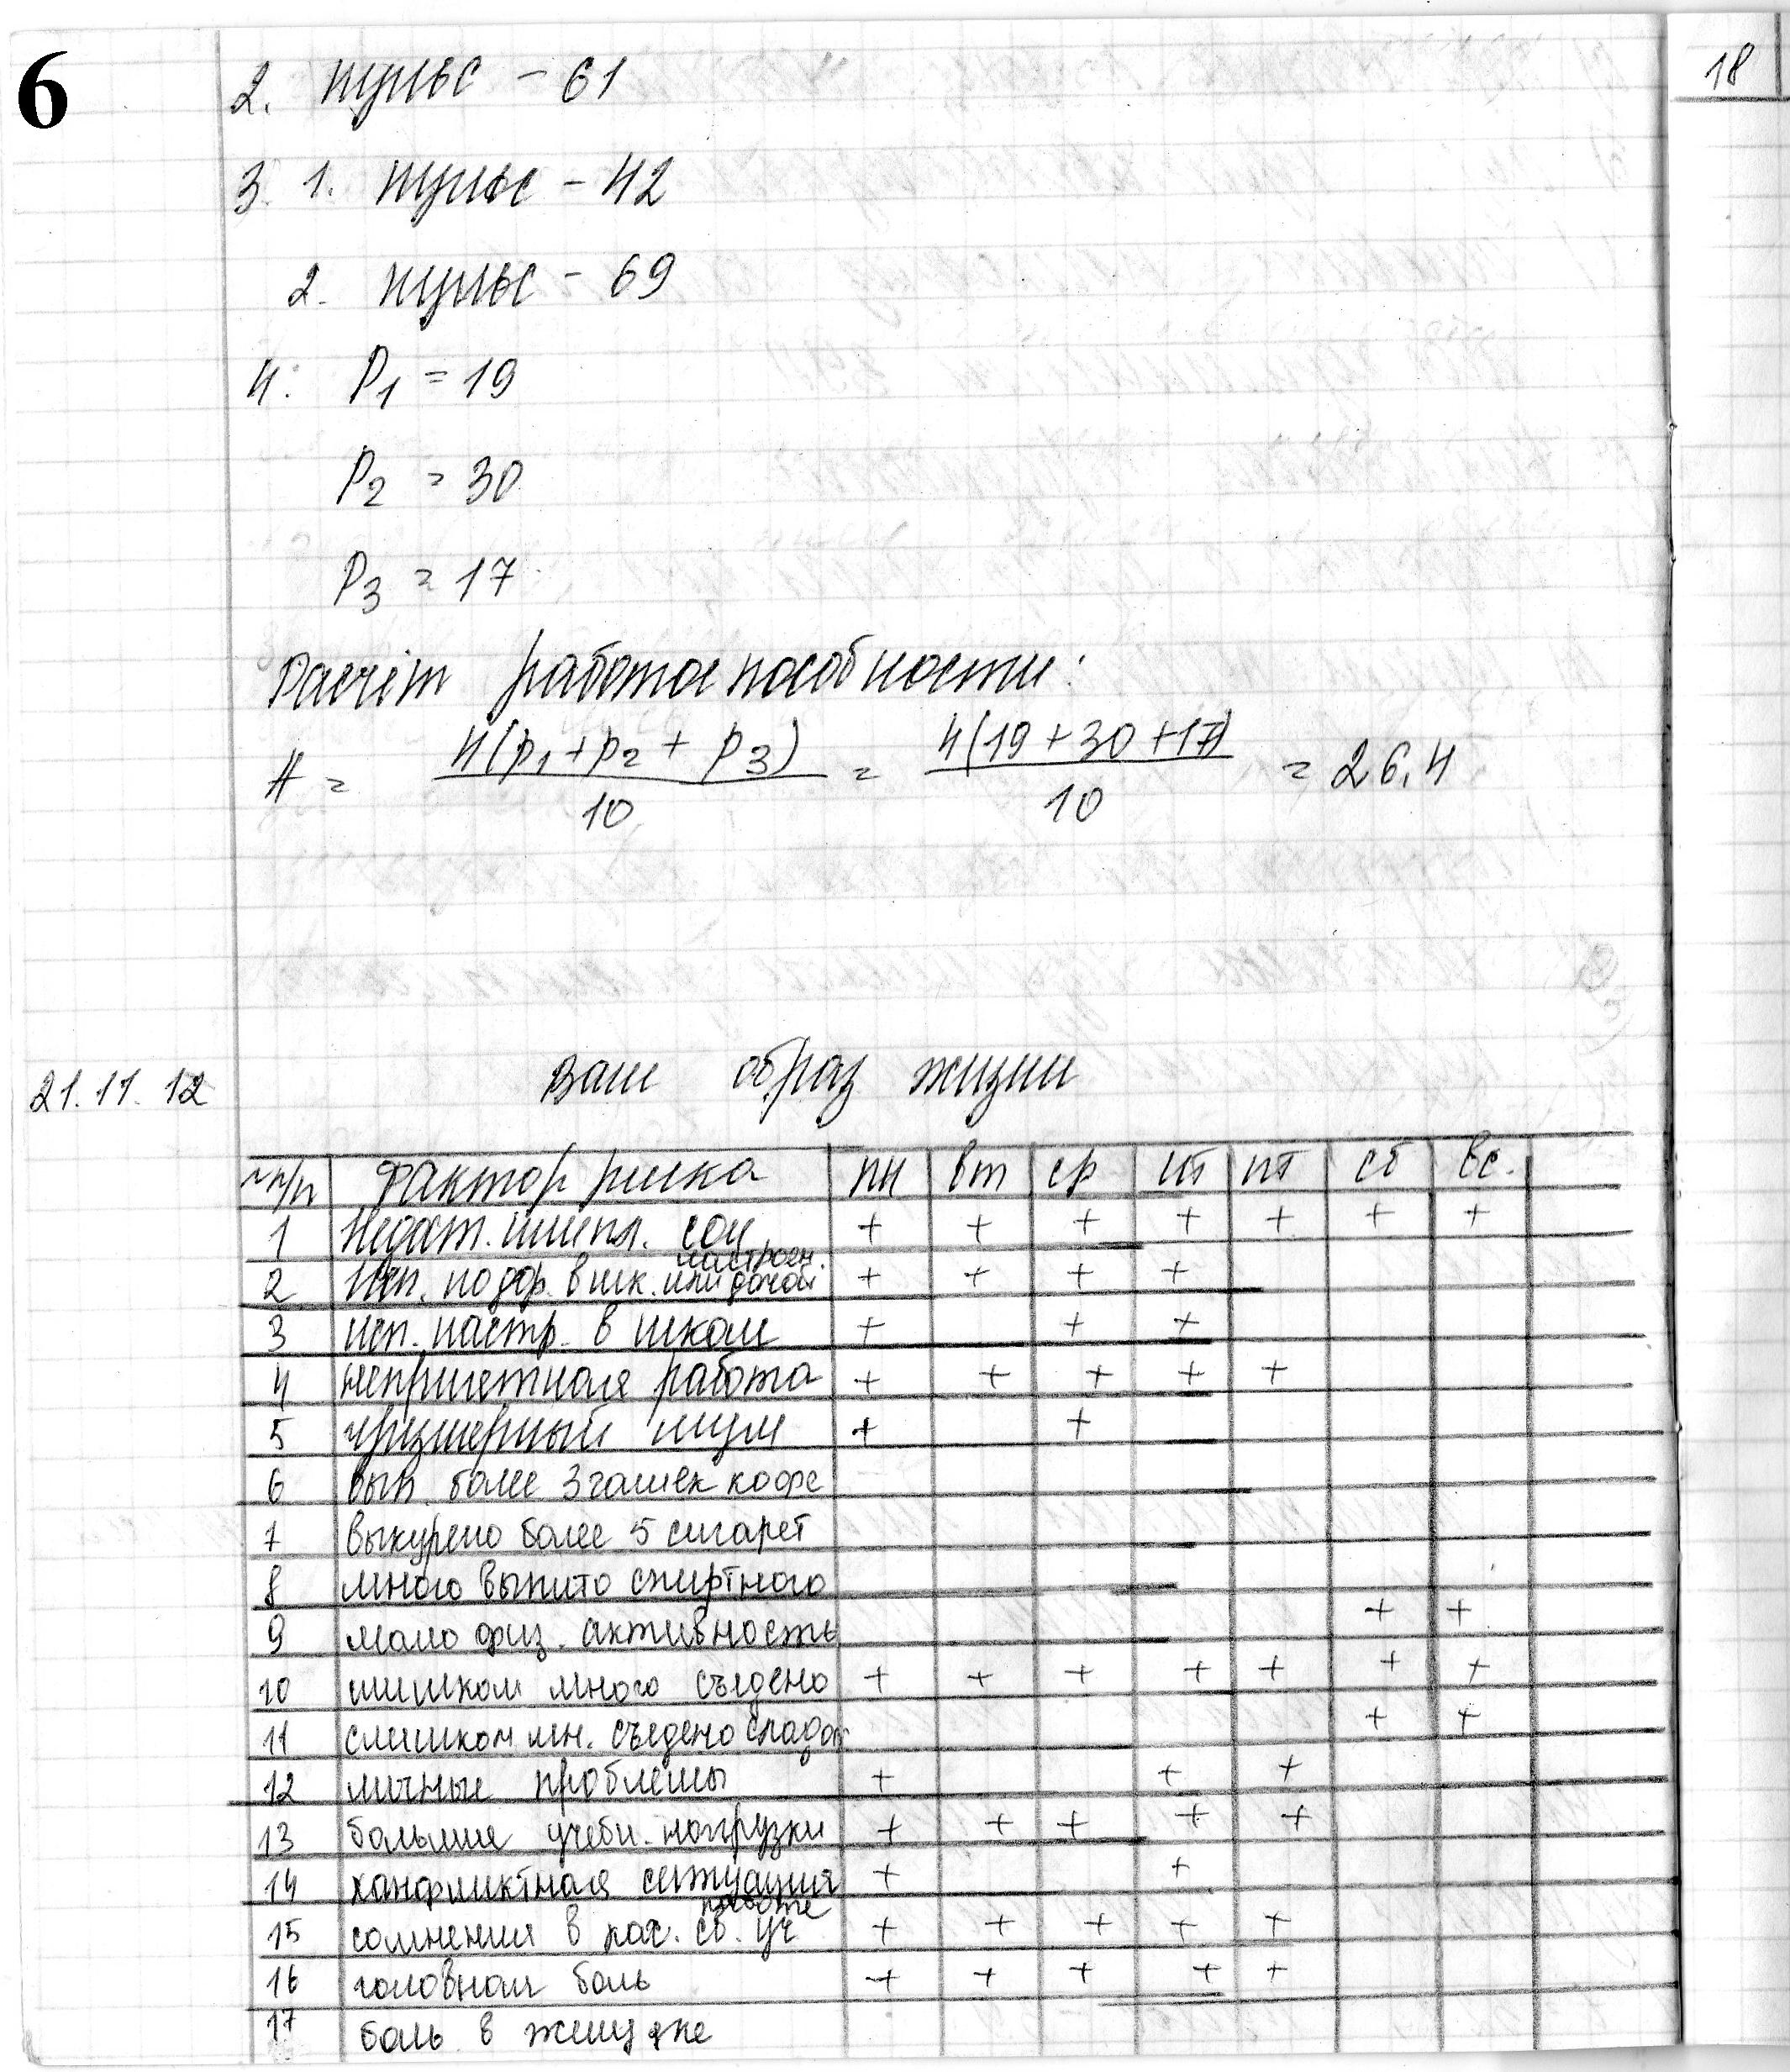 6
18
2. пульс - 61
3. 1. пульс - 42
2. пульс - 69
4. P1 = 19
P2 = 30
P3 = 17
Расчёт работоспособности:
A = 4(p1+p2+p3) / 10 = 4(19+30+17) / 10 = 26,4
21.11.12 Ваш образ жизни
№ п/п фактор риска пн вт ср чт пт сб вс.
1 недост. сон + + + + + + +
2 подор. в шк. или домой настроен. + + + +
3 исп. настр. в школе + + +
4 неприятная работа + + + + +
5 чрезмерный шум + +
6 вып. более 3 чашек кофе
7 выкурено более 5 сигарет
8 много выпито спиртного
9 мало физ. активность + +
10 слишком много съедено + + + + + + +
11 слишком мн. съедено сладок + +
12 личные проблемы + + +
13 большие учебн. нагрузки + + + + +
14 конфликтная ситуация + +
15 сомнения в кач. св. уч работе + + + + +
16 головная боль + + + + +
17 боль в желудке